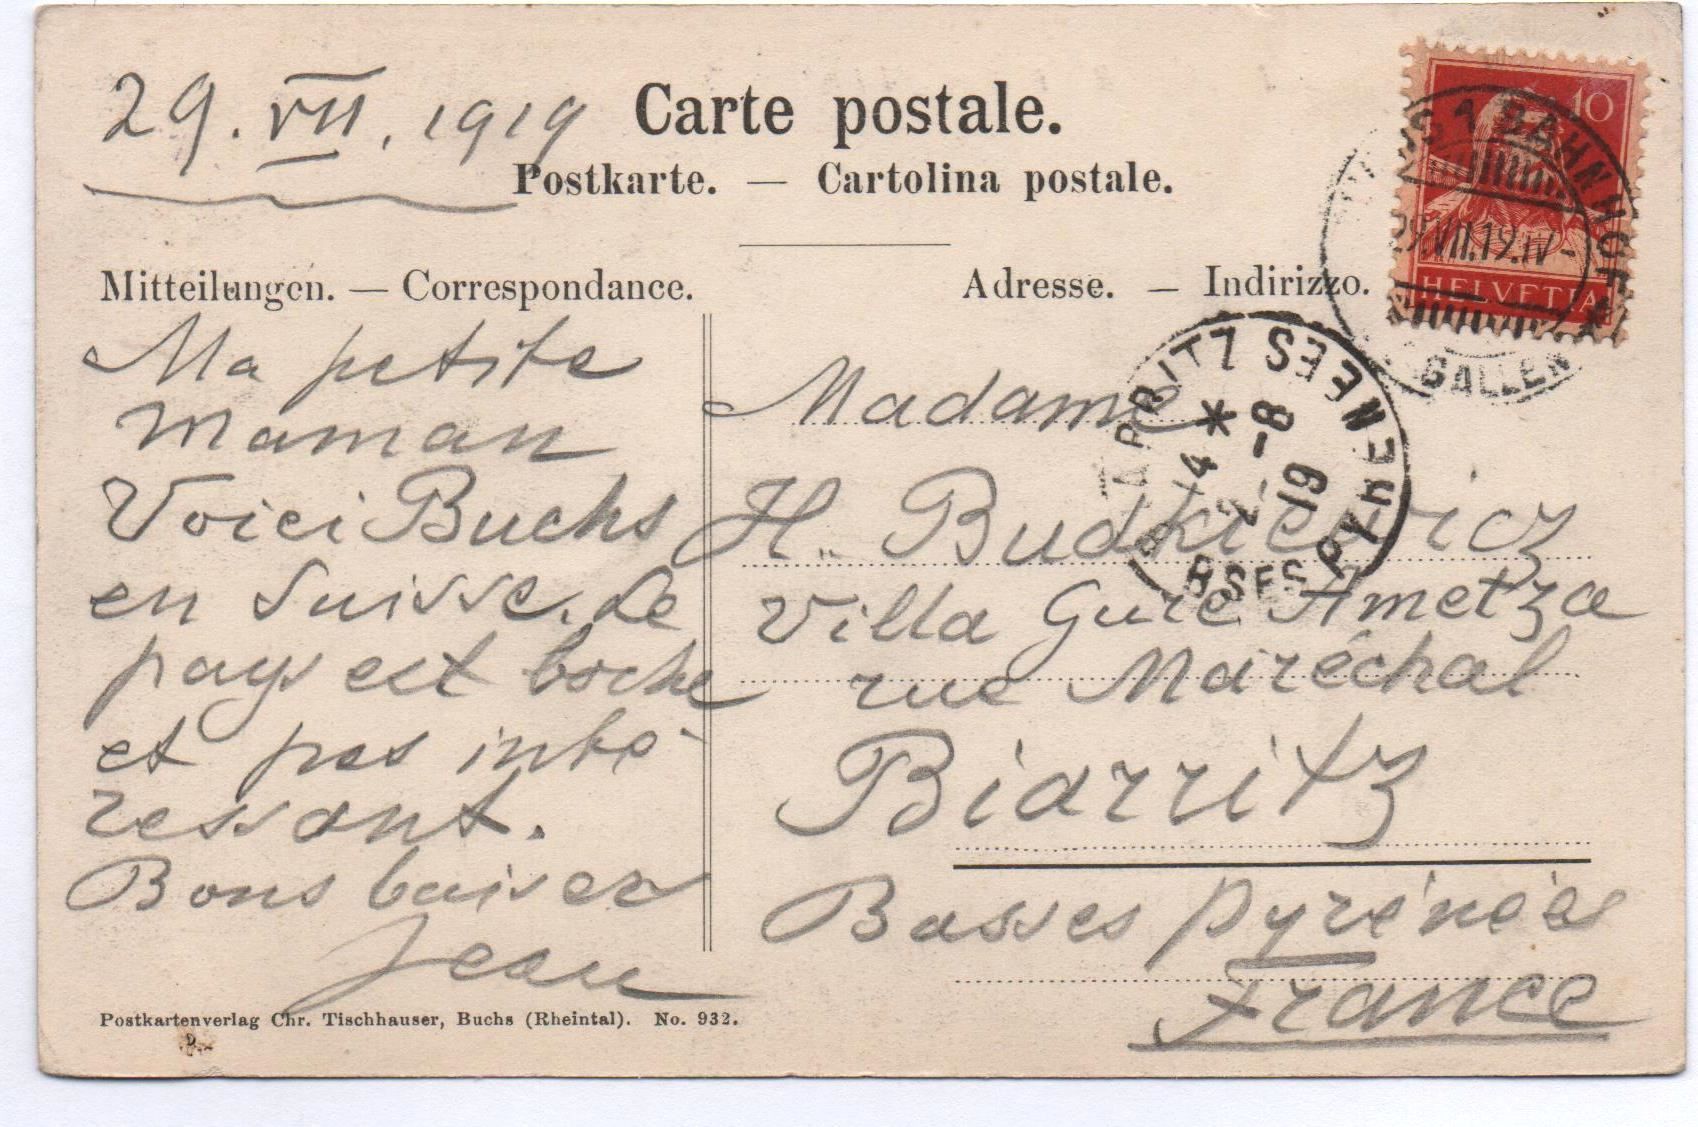 29. VII. 1919
Carte postale.
Postkarte. — Cartolina postale.
Mitteilungen. — Correspondance.
Adresse. — Indirizzo.
Ma petite
Maman
Voici Buchs
en Suisse. Le
pays est boche
et pas inté-
ressant.
Bons baisers
Jean
Madame
H. Budkiewicz
Villa Gure Ametza
rue Maréchal
Biarritz
Basses Pyrénées
France
10
HELVETIA
BAHNHOF
29.VII.19.IV-
GALLEN
BIARRITZ
BSES PYRENEES
14
2-8
19
Postkartenverlag Chr. Tischhauser, Buchs (Rheintal). No. 932.